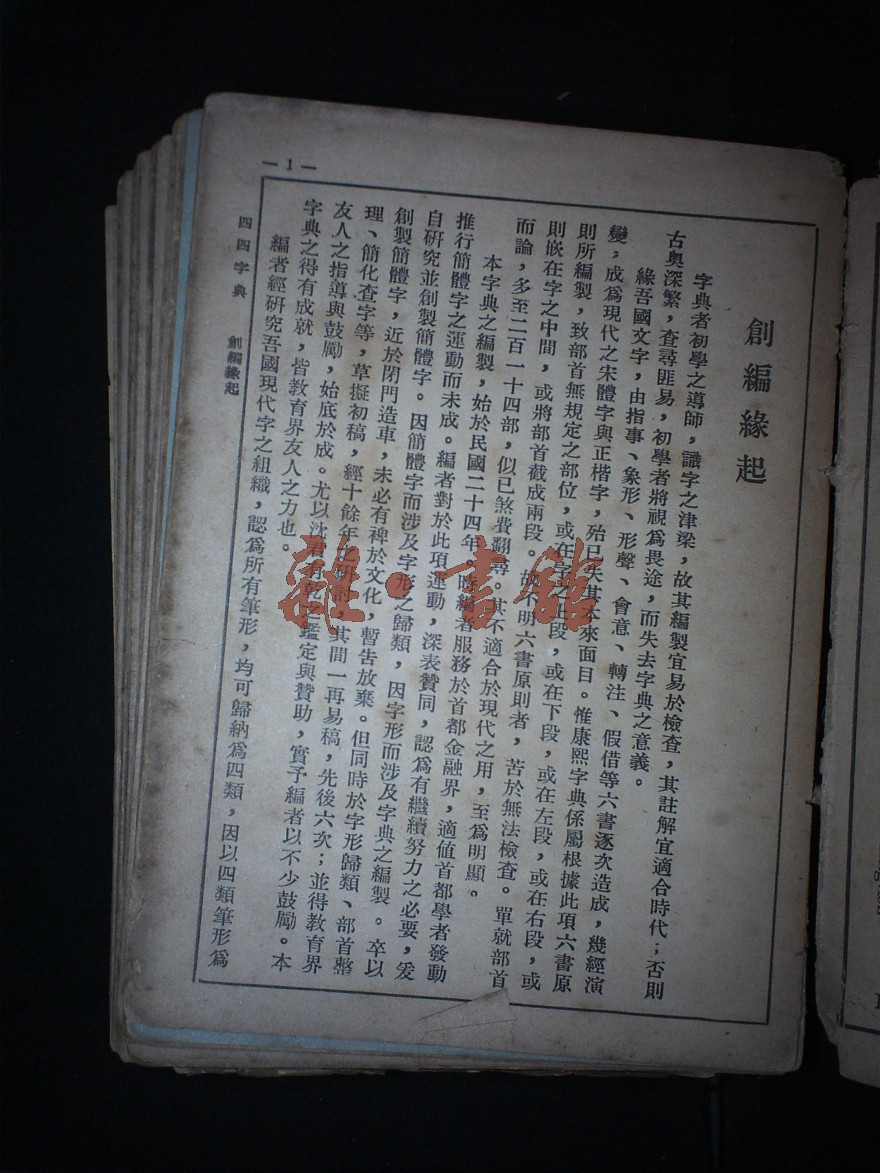 創編緣起
字典者初學之導師，識字之津梁，故其編製宜易於檢查，其註解宜適合時代；否則
古奧深繁，查尋匪易，初學者將視爲畏途，而失去字典之意義。
緣吾國文字，由指事、象形、形聲、會意、轉注、假借等六書逐次造成，幾經演
變，成爲現代之宋體字與正楷字，殆已失其本來面目。惟康熙字典係屬根據此項六書原
則所編製，致部首無規定之部位，或在字之上段，或在下段，或在左段，或在右段，或
則嵌在字之中間，或將部首截成兩段。故不明六書原則者，苦於無法檢查。單就部首
而論，多至二百一十四部，似已煞費翻尋。其不適合於現代之用，至爲明顯。
本字典之編製，始於民國二十四年。時編者服務於首都金融界，適值首都學者發動
推行簡體字之運動而未成。編者對於此項運動，深表贊同，認爲有繼續努力之必要，爰
自研究並創製簡體字。因簡體字而涉及字形之歸類，因字形而涉及字典之編製。卒以
創製簡體字，近於閉門造車，未必有裨於文化，暫告放棄。但同時於字形歸類、部首整
理、簡化查字等，草擬初稿，經十餘年之研討，其間一再易稿，先後六次；並得教育界
友人之指導與鼓勵，始底於成。尤以沈君有乾之鑑定與贊助，實予編者以不少鼓勵。本
字典之得有成就，皆教育界友人之力也。
編者經研究吾國現代字之組織，認爲所有筆形，均可歸納爲四類，因以四類筆形爲
四四字典 創編緣起
—1—
雜·書館